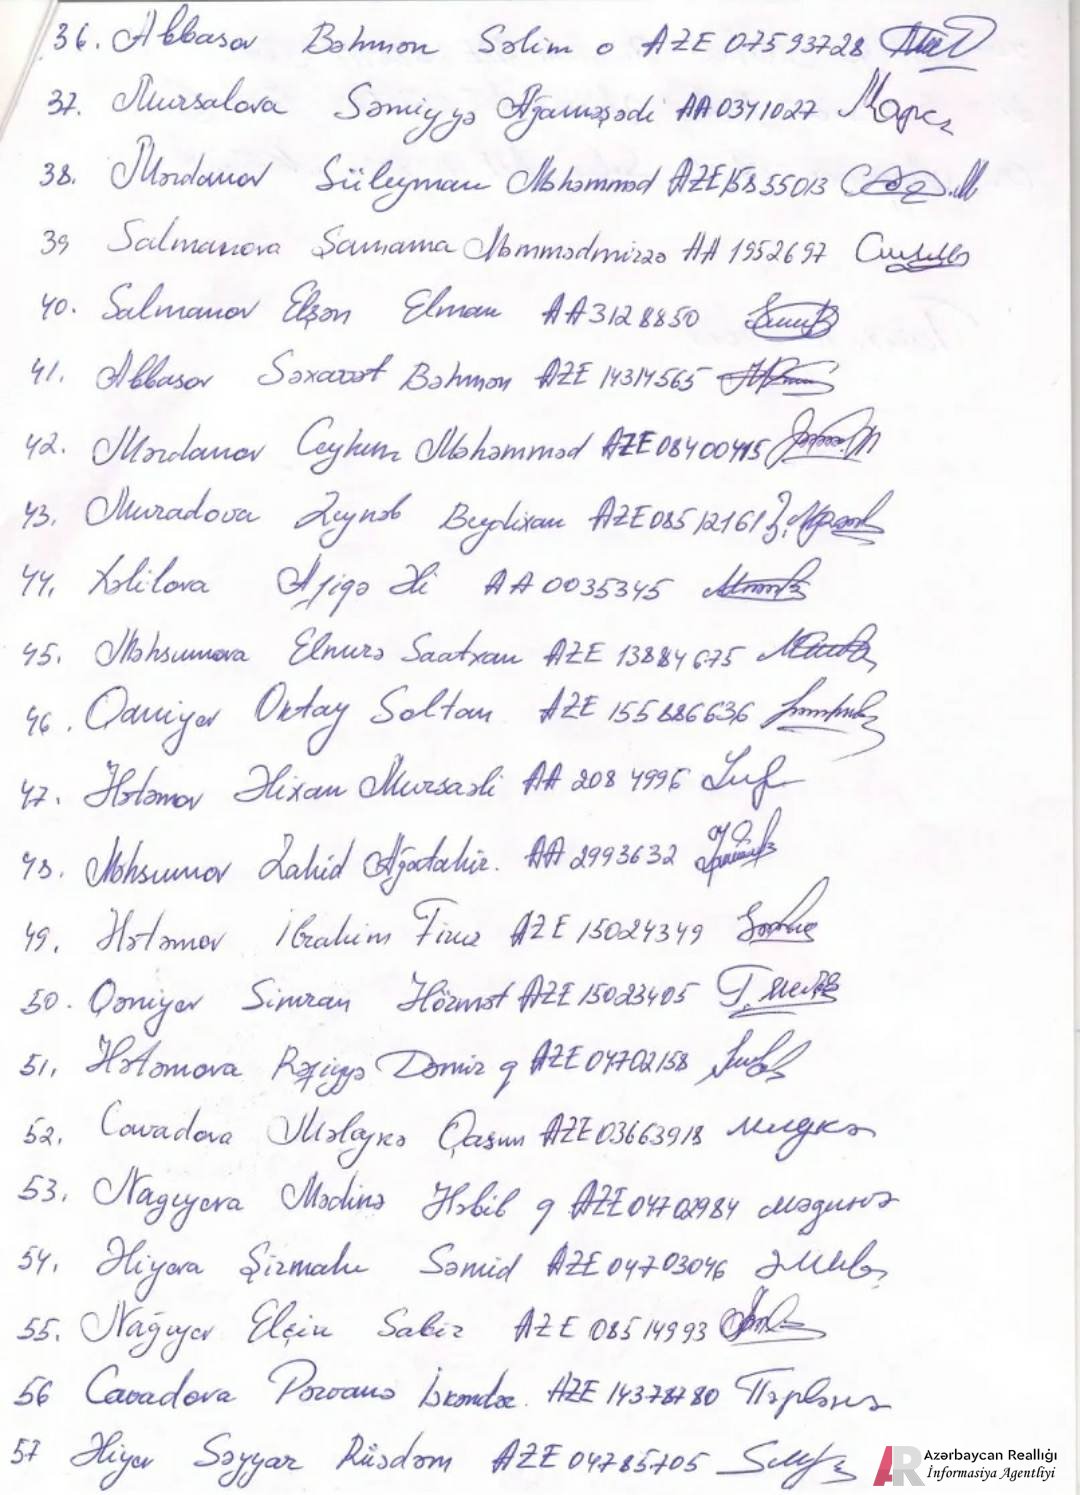 36. Abbasov Bəhmən Səlim o AZE 07593728
37. Mursalova Səmiyyə Ağaməşədi AA0341027 Марс
38. Mərdanov Süleyman Məhəmməd AZE15855013
39 Salmanova Şamama Məmmədmirzə AA 1952697
40. Salmanov Elşən Elman AA3128850
41. Abbasov Səxavət Bəhmən AZE 14314565
42. Mərdanov Ceyhun Məhəmməd AZE08400415
43. Muradova Zeynəb Beydixan AZE08512161
44. Xəlilova Afiqə Əli AA 0035345
45. Məhsumova Elnurə Saatxan AZE 13884675
46. Qaniyev Oktay Soltan AZE 155886636
47. Hətəmov Əlixan Mursəəli AA 2084996
48. Məhsumov Zahid Ağatahir. AA 2993632
49. Hətəmov İbrahim Firuz AZE 15024349
50. Qəniyev Simran Hörmət AZE 15023405
51. Hətəmova Rəfiyyə Dəmir q AZE 04702158
52. Cavadova Mələykə Qasım AZE 03663918
53. Nagıyeva Mədinə Həbib q AZE 04702984 мәдинә
54. Əliyeva Şirmahı Səmid AZE 04703046
55. Nağıyev Elçin Sabir AZE 08514993
56 Cavadova Pərvanə İskəndər. AZE 14378780 Пәрванә
57 Əliyev Səyyar Rüsdəm AZE 04785705
AR Azərbaycan Reallığı
İnformasiya Agentliyi